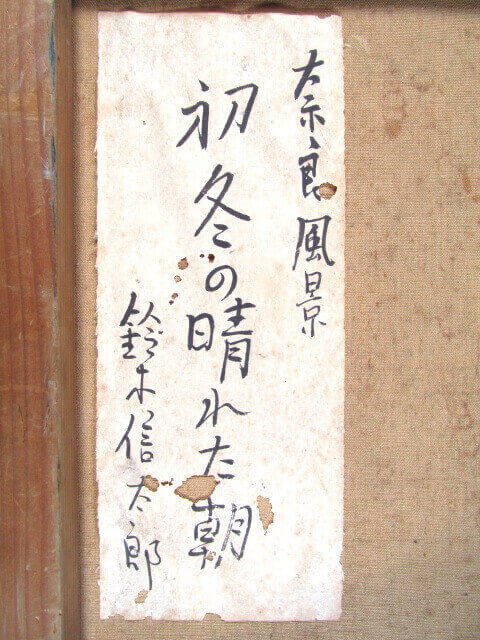 奈良風景
初冬の晴れた朝
鈴木信太郎